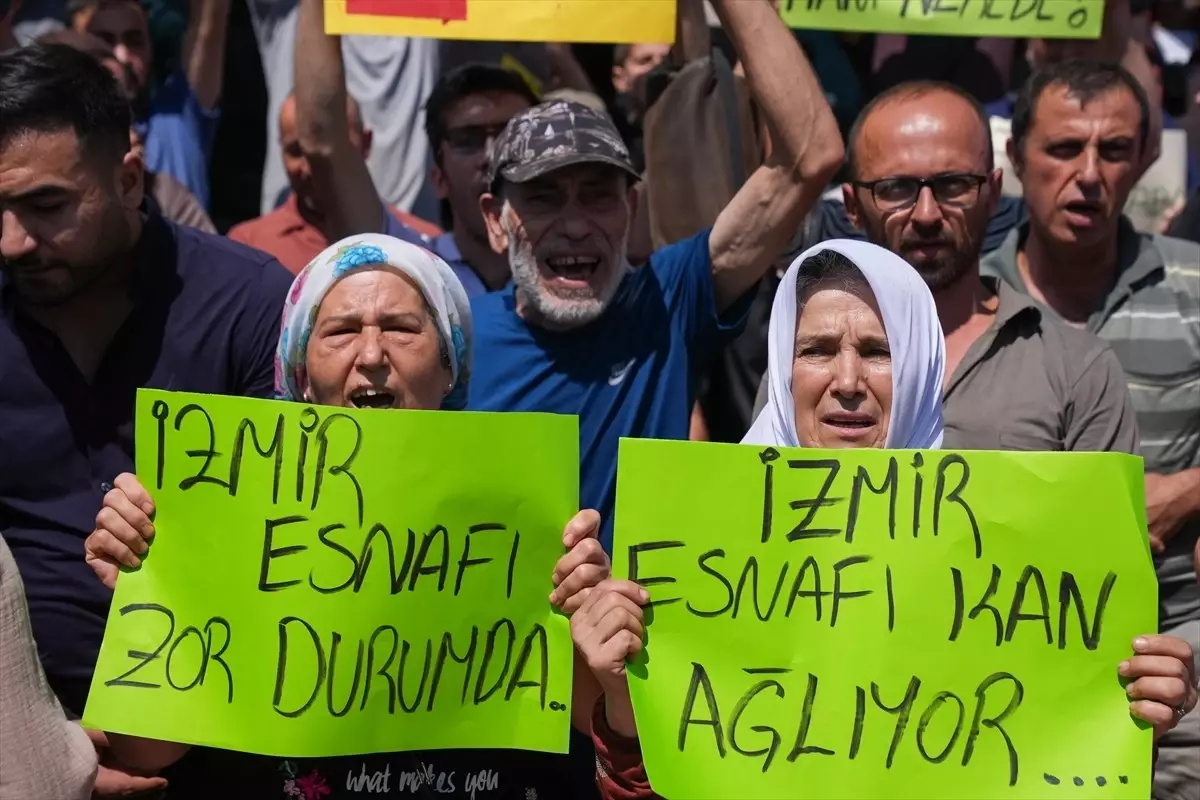 NEREDE!
İZMİR
ESNAFI
ZOR DURUMDA..
İZMİR
ESNAFI KAN
AĞLIYOR.....
what makes you